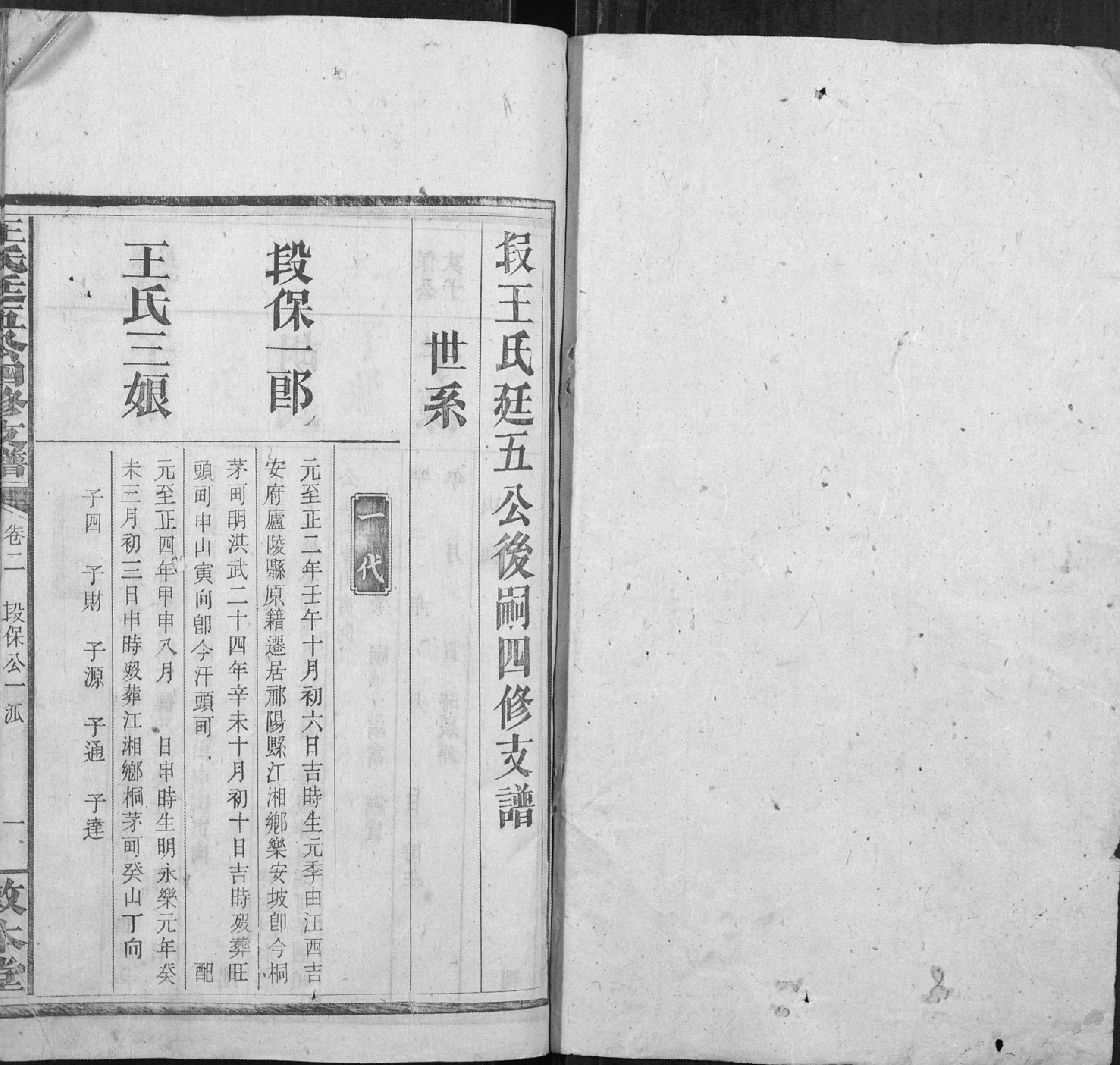 段王氏廷五公後嗣四修支譜
世系
一代
段保一郎
元至正二年壬午十月初六日吉時生元季由江西吉
安府廬陵縣原籍遷居祁陽縣江湘鄉樂安坡卽今桐
茅町明洪武二十四年辛未十月初十日吉時歿葬旺
頭町申山寅向卽今汗頭町 配
王氏三娘
元至正四年甲申八月 日申時生明永樂元年癸
未三月初三日申時歿葬江湘鄉桐茅町癸山丁向
子四 子財 子源 子通 子達
王氏廷五公四修支譜 卷二 段保公一派 一 敦本堂